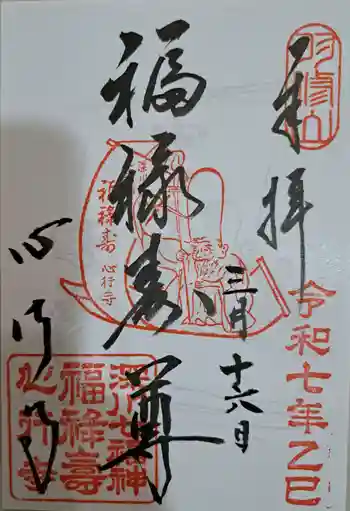 奉拝
令和七年乙巳
三月十六日
福禄寿尊
福禄寿
心行寺
心行寺
深川七福神
福禄壽
心行寺